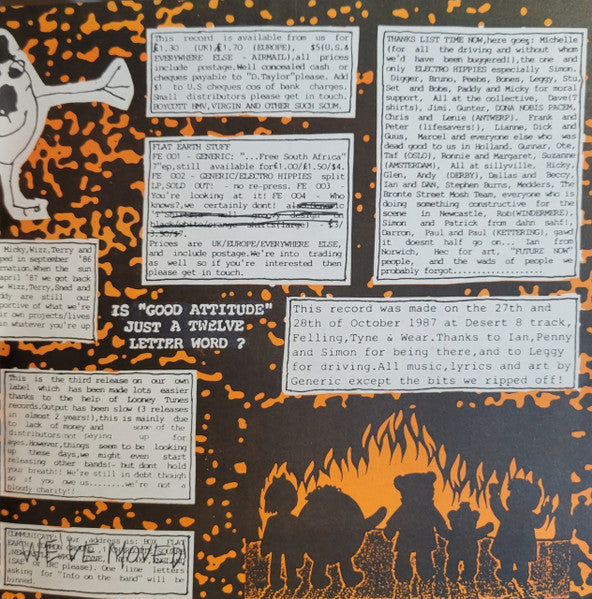 This record is available from us for
£1.30 (UK),£1.70 (EUROPE), $5(U.S.&
EVERYWHERE ELSE - AIRMAIL),all prices
include postage.Well concealed cash or
cheques payable to "D.Taylor"please. Add
$1 to U.S cheques cos of bank charges.
Small distributors please get in touch.
BOYCOTT HMV,VIRGIN AND OTHER SUCH SCUM.
FLAT EARTH STUFF
FE 001 - GENERIC: "...Free South Africa"
7"ep,still available for£1.00/£1.50/$4.
FE 002 - GENERIC/ELECTRO HIPPIES split
LP,SOLD OUT! - no re-press. FE 003
You're looking at it! FE 004 - Who
knows?,we certainly dont!
Prices are UK/EUROPE/EVERYWHERE ELSE,
and include postage.We're into trading
as well so if you're interested then
please get in touch.
THANKS LIST TIME NOW,here goes: Michelle
(for all the driving and without whom
we'd have been buggered!),the one and
only ELECTRO HIPPIES especially Simon.
Digger, Bruno, Peebs, Bones, Leggy, Stu,
Set and Bobs, Paddy and Micky for moral
support, All at the collective, Dave(T
shirts), Jim, Gunter, DONA NOBIS PACEM,
Chris and Lenie (ANTWERP). Frank and
Peter (lifesavers!), Lianne, Dick and
Guus, Marcel and everyone else who was
dead good to us in Holland. Gunnar, Ote,
Taf (OSLO), Ronnie and Margaret, Suzanne
(AMSTERDAM), All at sillyville, Ricky,
Glen, Andy (DERBY), Dallas and Beccy,
Ian and DAN, Stephen Burns, Medders, The
Bronte Street Mosh Team, everyone who is
doing something constructive for the
scene in Newcastle, Rob(WINDERMERE),
Simon and Patrick from dahn sahf!,
Darron, Paul and Paul (KETTERING), gawd
it doesnt half go on... Ian from
Norwich, Hec for art, "FUTURE NOW"
people, and the wads of people we
probably forgot...................
Micky,Wizz,Terry and
ped in september '86
rmation.When the sun
april '87 we got back
w Wizz,Terry,Sned and
ddy are still our
portive of what we're
ir own projects/lives
whatever you're up
IS "GOOD ATTITUDE"
JUST A TWELVE
LETTER WORD ?
This record was made on the 27th and
28th of October 1987 at Desert 8 track,
Felling,Tyne & Wear.Thanks to Ian,Penny
and Simon for being there,and to Leggy
for driving.All music,lyrics and art by
Generic except the bits we ripped off!
This is the third release on our own
label which has been made lots easier
thanks to the help of Looney Tunes
records.Output has been slow (3 releases
in almost 2 years!),this is mainly due
to lack of money and some of the
distributors not paying up for
ages.However,things seem to be looking
up these days,we might even start
releasing other bands!- but dont hold
your breath!! We're still in debt though
so if you owe us........we're not a
bloody charity!!
COMMUNICATE: Our address is: BOX FLAT
EARTH
WE'VE MOVED!
(SAE or IRC please). One line letters
asking for "Info on the band" will be
binned.